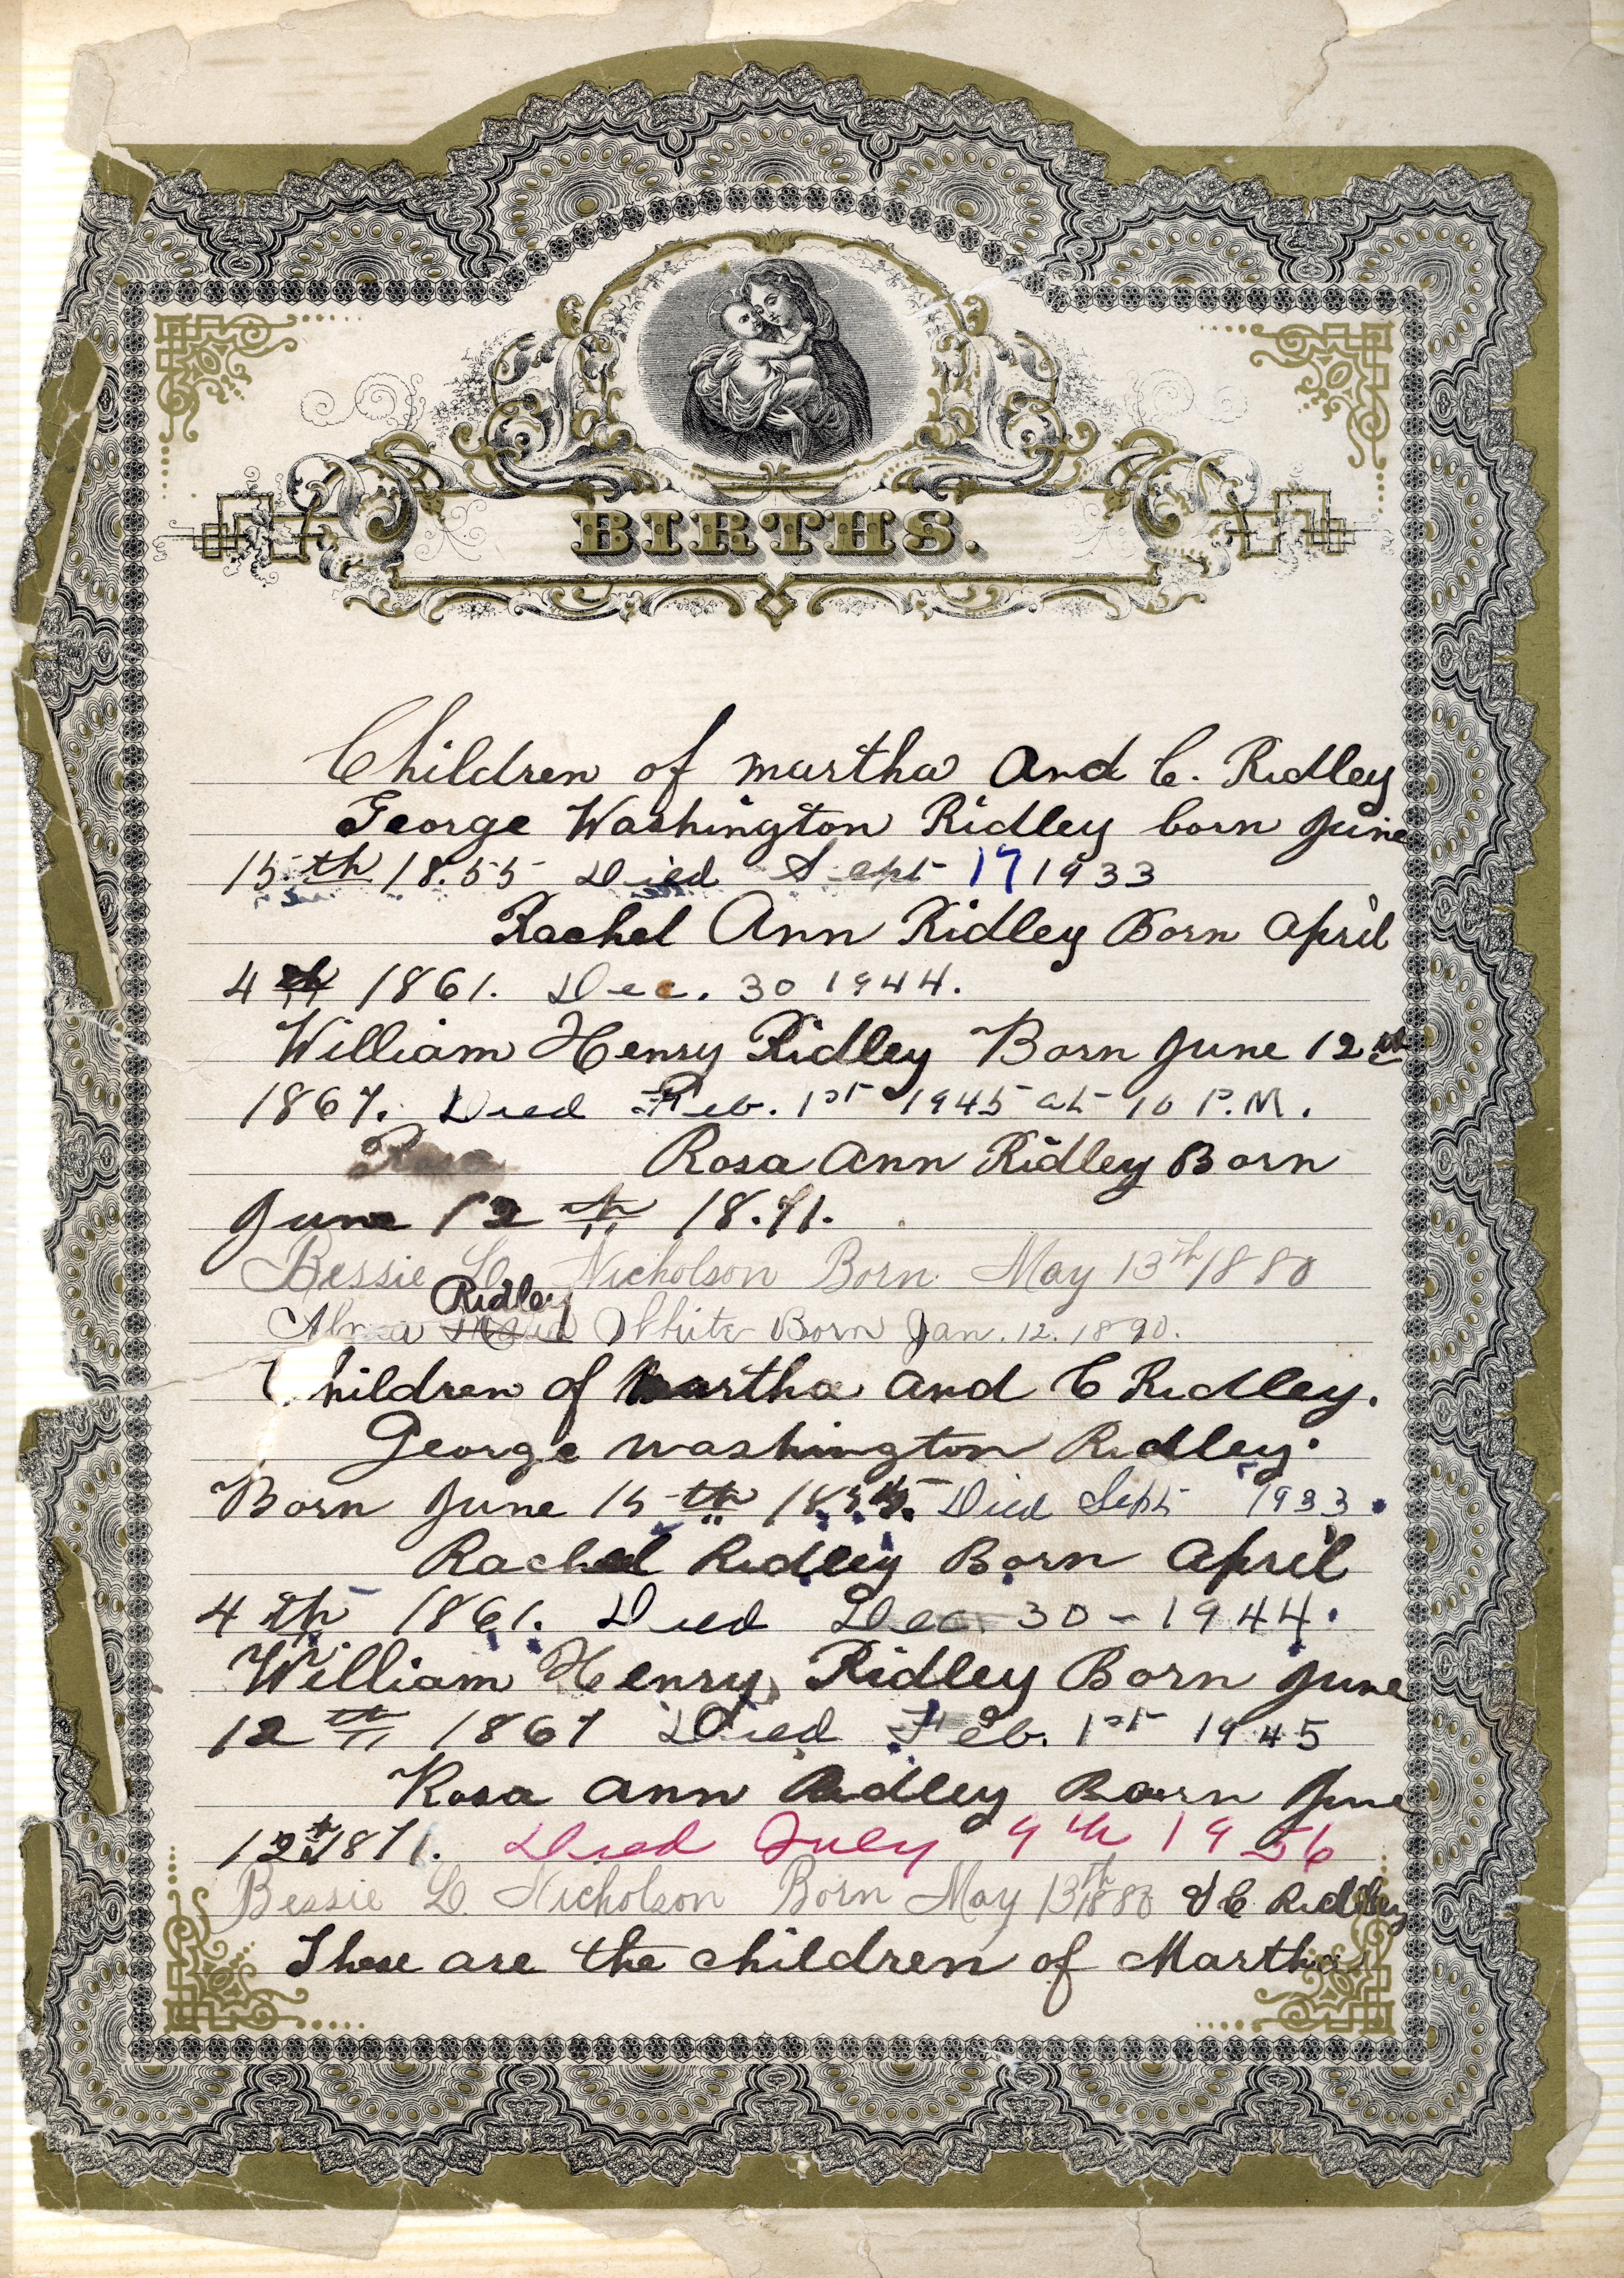 BIRTHS.
Children of martha and C. Ridley
George Washington Ridley born June
15th 18.55 Died Sept 17 1933
Rachel Ann Ridley Born April
4th 1861. Dec. 30 1944.
William Henry Ridley Born June 12th
1867. Died Feb. 1st 1945 at 10 P.M.
Rosa Rosa Ann Ridley Born
June 12th 18.71.
Bessie L. Nicholson Born May 13th 1880
Ridley
White Born Jan. 12. 1890.
Children of Martha and C Ridley.
George Washington Ridley.
Born June 15th 1855. Died Sept 1933.
Rachel Ridley Born April
4th 1861. Died Dec. 30 - 1944.
William Henry Ridley Born June
12th 1867 Died Feb. 1st 1945
Rosa Ann Ridley Born June
12th 1871. Died July 9th 1956
Bessie L. Nicholson Born May 13th 1880 & C Ridley
These are the children of Martha